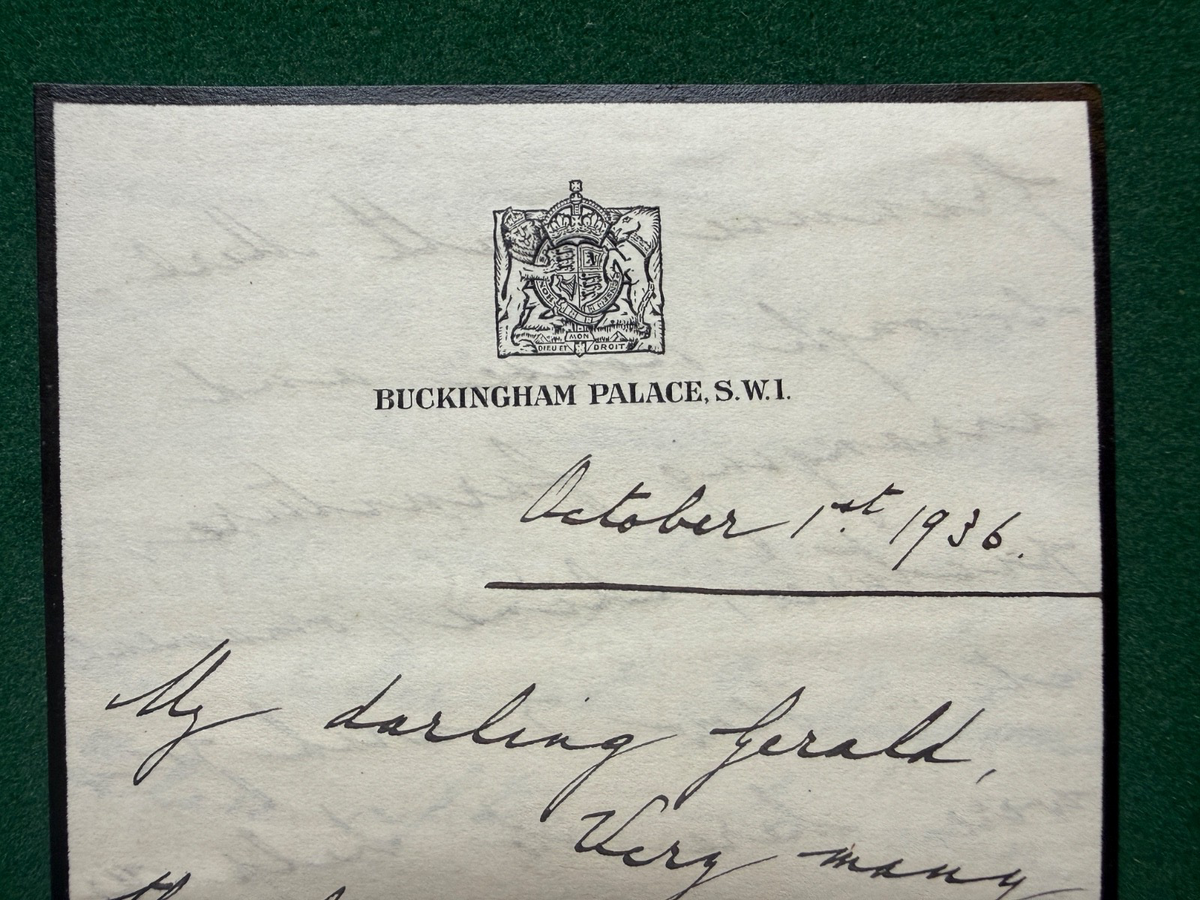 MON
DIEU ET DROIT
BUCKINGHAM PALACE, S.W.1.
October 1st. 1936.
My darling Gerald,
Very many